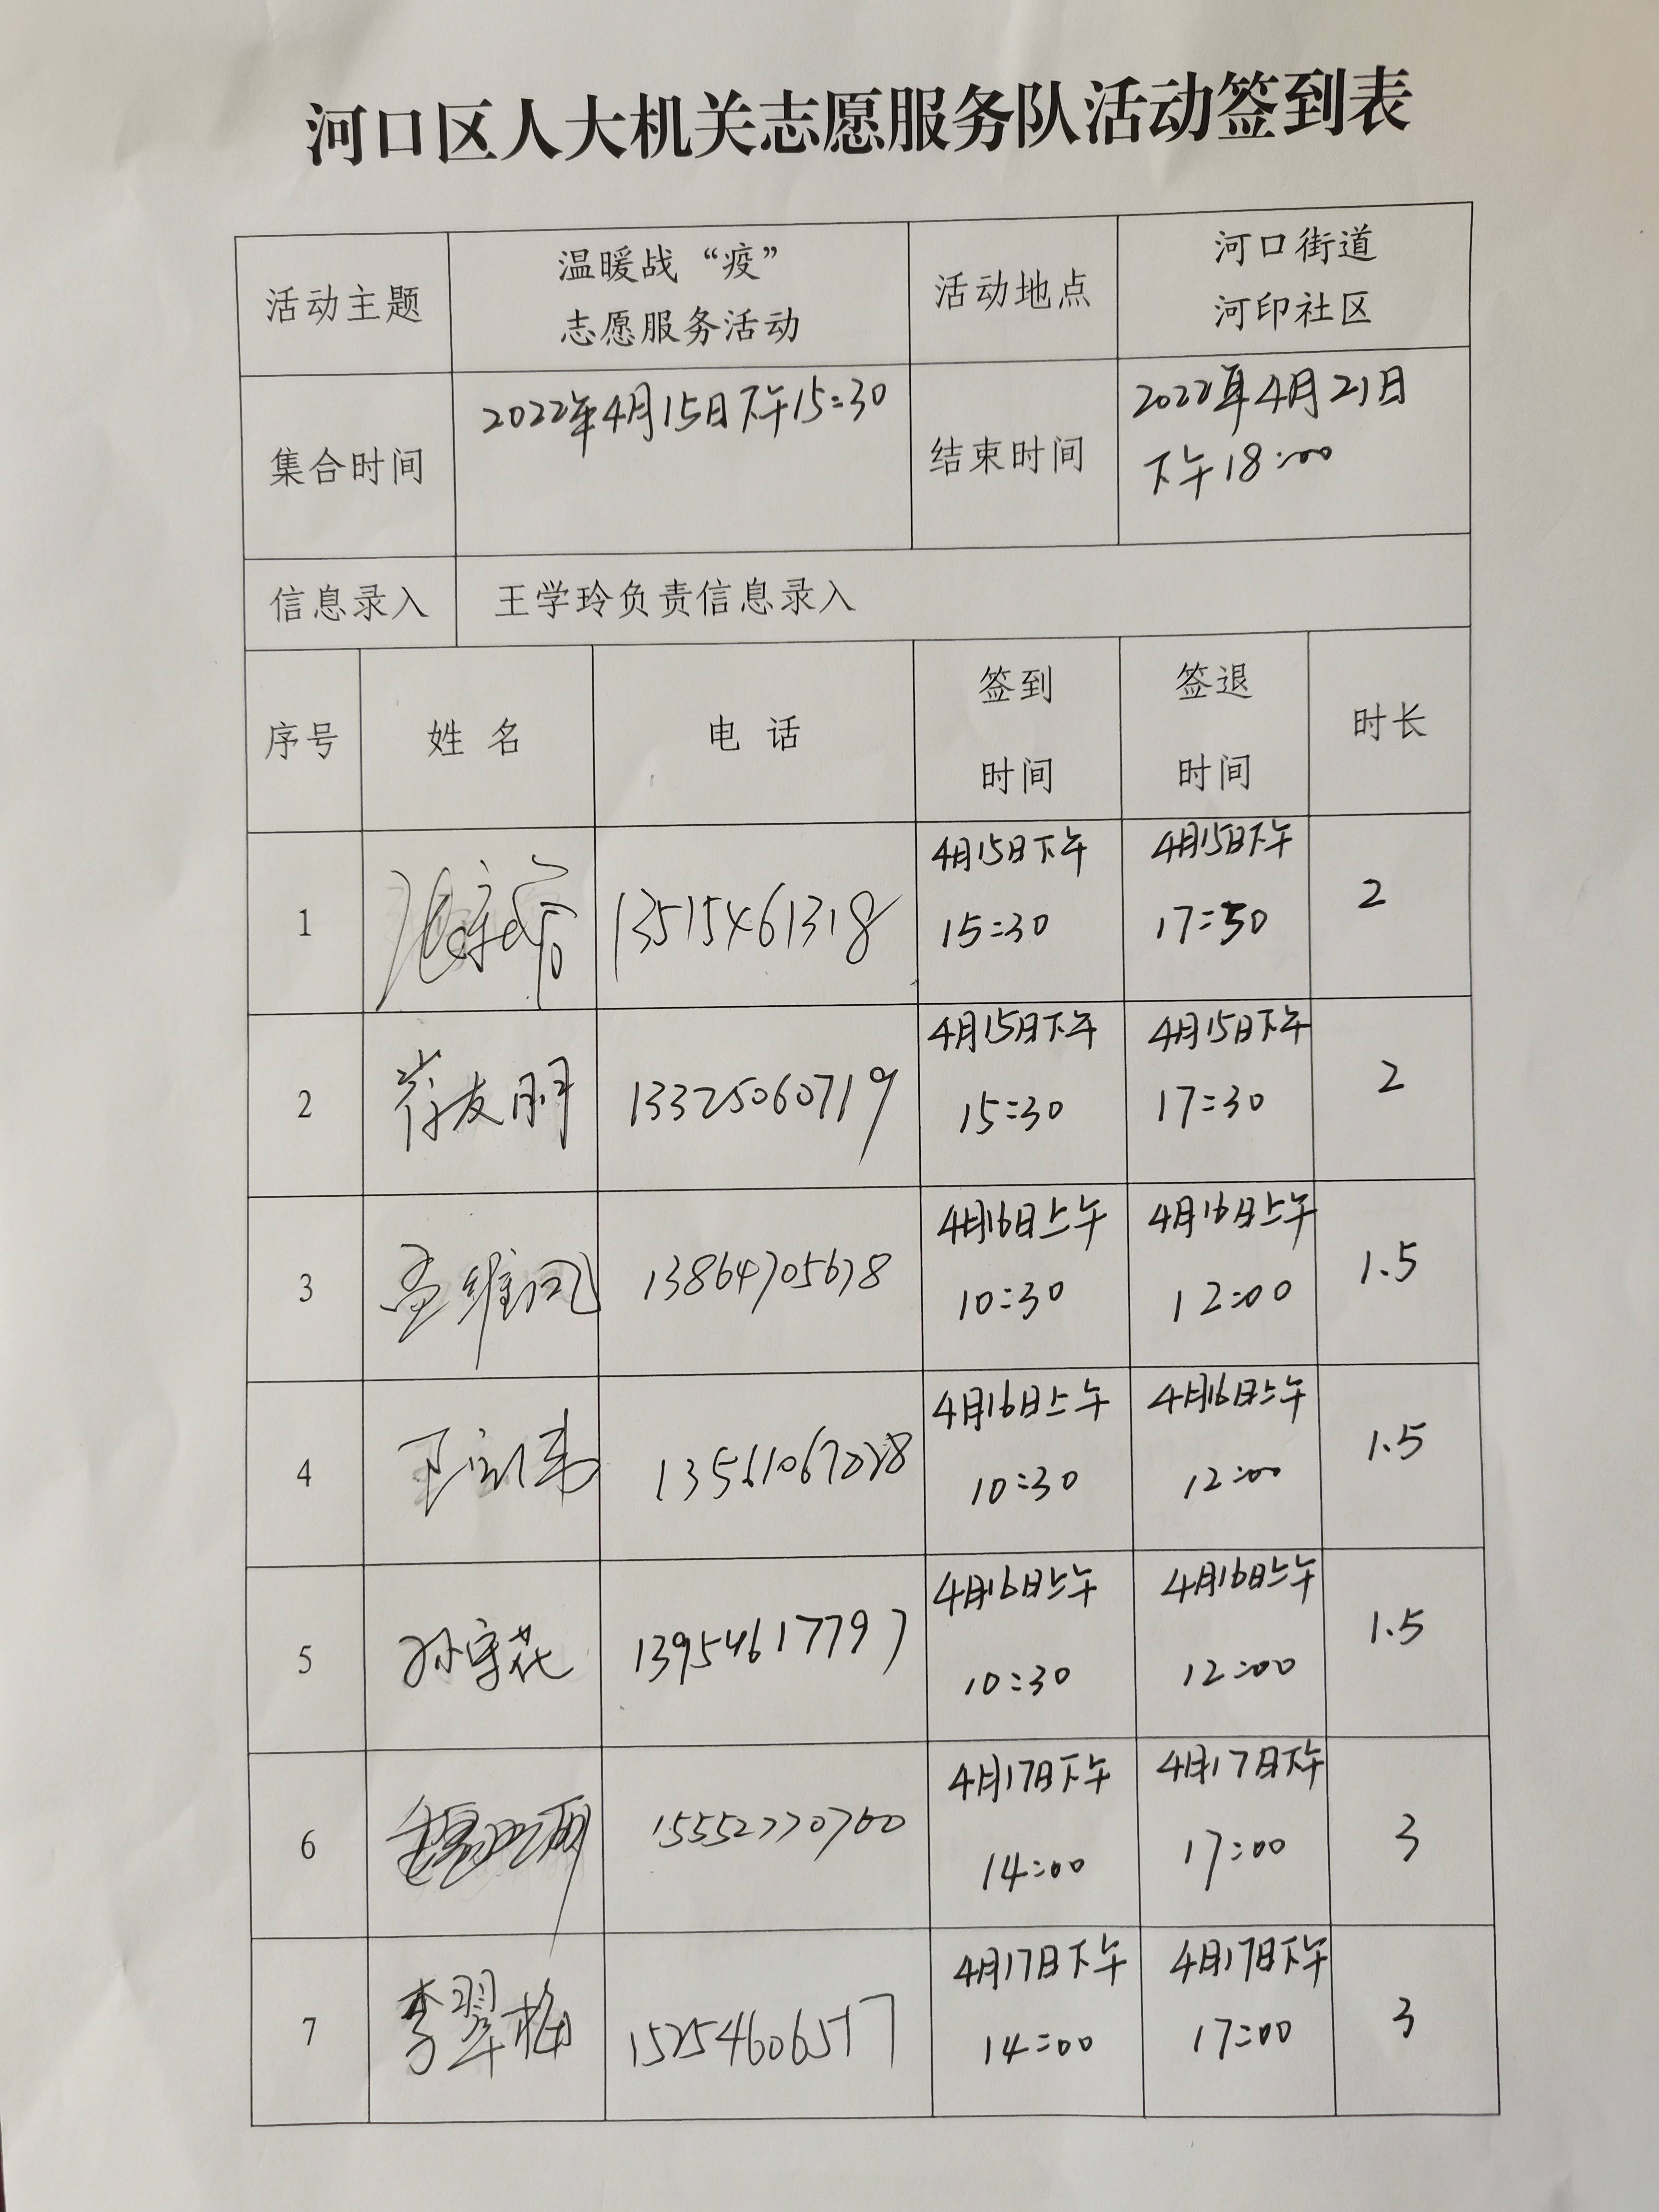 河口区人大机关志愿服务队活动签到表
活动主题
温暖战“疫”
志愿服务活动
活动地点
河口街道
河印社区
集合时间
2022年4月15日下午15:30
结束时间
2022年4月21日
下午18:00
信息录入
王学玲负责信息录入
序号
姓 名
电 话
签到
时间
签退
时间
时长
1
13515461318
4月15日下午
15:30
4月15日下午
17:50
2
2
13325060719
4月15日下午
15:30
4月15日下午
17:30
2
3
孟维凤
13864705678
4月16日上午
10:30
4月16日上午
12:00
1.5
4
4月16日上午
10:30
4月16日上午
12:00
1.5
5
孙守花
13954617797
4月16日上午
10:30
4月16日上午
12:00
1.5
6
15552770760
4月17日下午
14:00
4月17日下午
17:00
3
7
李翠梅
15254606517
4月17日下午
14:00
4月17日下午
17:00
3